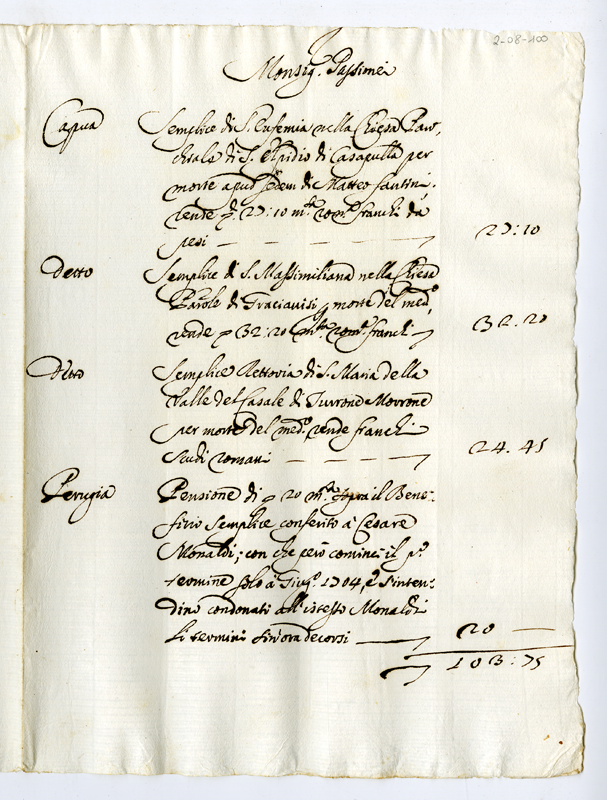 2-08-100
Monsig.r Passionei
Capua Semplice di S. Eufemia nella Chiesa Par,
chiale di S. Elpidio di Casapulla per
morte apud sedem di Matteo fantini.
rende franchi da
pesi 27:10
Detto Semplice di S. Massimiliana nella Chiesa
Par.ole di morte del med.o
rende 32:20 franchi 32.20
Detto Semplice Rettoria di S. Maria della
Valle del Casale di Turrone Morrone
per morte del med.o rende franchi
scudi romani 24.45
Perugia Pensione di 20 m.ta sopra il Bene-
ficio semplice conferito à Cesare
Monaldi; con che però cominci il p.o
termine solo à Giug.o 1704, e s'inten-
dino condonati all'istesso Monaldi
li termini fin'ora decorsi 20 —
103:75